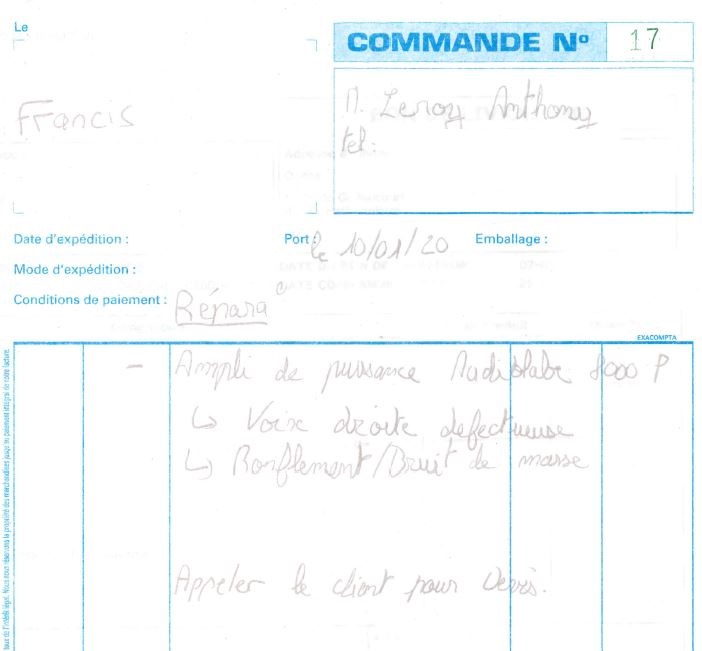 Le
COMMANDE Nº 17
Francis
M. Leroy Anthony
tel:
Date d'expédition :
Port :
le 10/01/20
Emballage :
Mode d'expédition :
Conditions de paiement :
Répara°
EXACOMPTA
- Ampli de puissance Audiolabe 8000 P
↳ Voix droite defectueuse
↳ Ronflement/Bruit de masse
Appeler le client pour Devis.